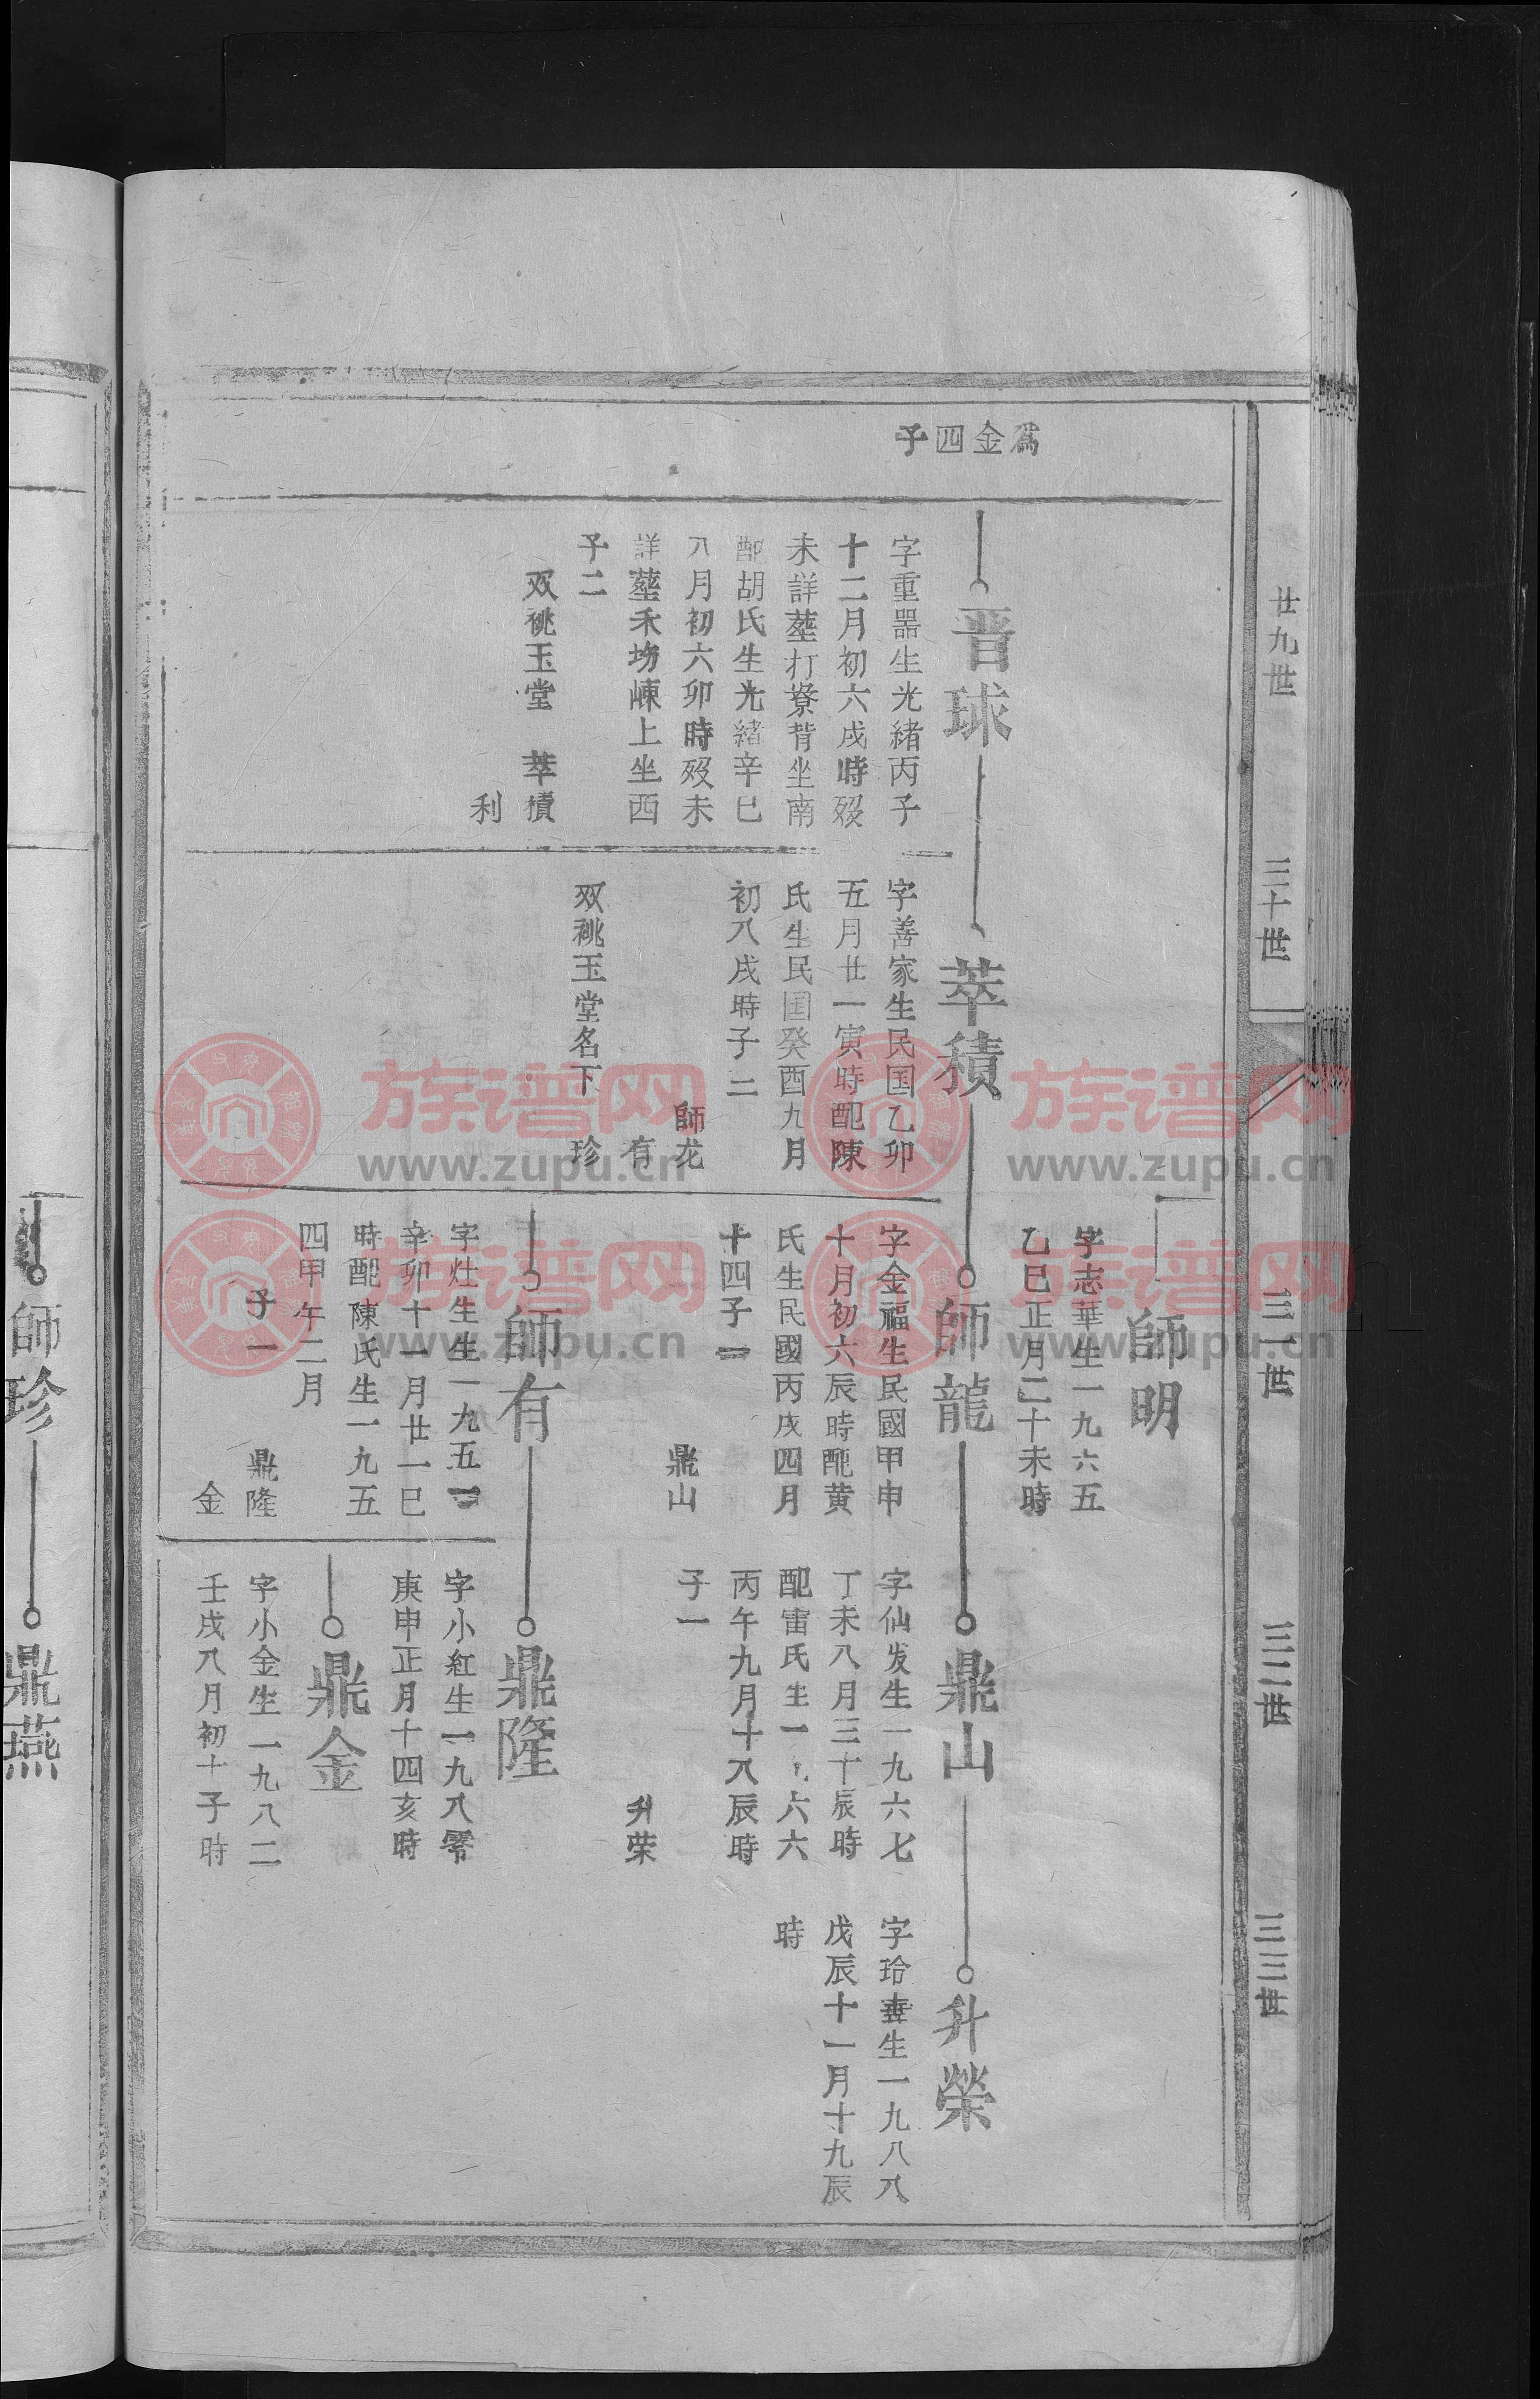 廿九世
三十世
三一世
三二世
三三世
爲金四子
晋球
字重器生光緒丙子
十二月初六戌時歿
未詳塟打寮背坐南
配胡氏生光緒辛巳
八月初六卯時歿未
詳塟禾坊崠上坐西
子二
双祧玉堂 萃積
利
萃積
字善家生民国乙卯
五月廿一寅時配陳
氏生民国癸酉九月
初八戌時子二
師龙
有
双祧玉堂名下 珍
師明
字志華生一九六五
乙巳正月二十未時
師龍
字金福生民國甲申
十月初六辰時配黄
氏生民國丙戌四月
十四子一
鼎山
師有
字灶生生一九五一
辛卯十一月廿一巳
時配陳氏生一九五
四甲午二月
子一 鼎隆
金
鼎山
字仙发生一九六七
丁未八月三十辰時
配雷氏生一九六六
丙午九月十八辰時
子一
升荣
鼎隆
字小紅生一九八零
庚申正月十四亥時
鼎金
字小金生一九八二
壬戌八月初十子時
升榮
字玲 生一九八八
戊辰十一月十九辰
時
師珍
鼎燕
族谱网
www.zupu.cn
族谱网
www.zupu.cn
族谱网
www.zupu.cn
族谱网
www.zupu.cn